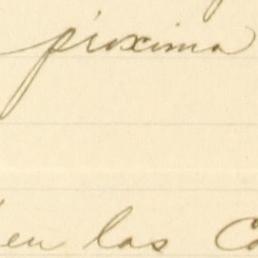 próxima
en las